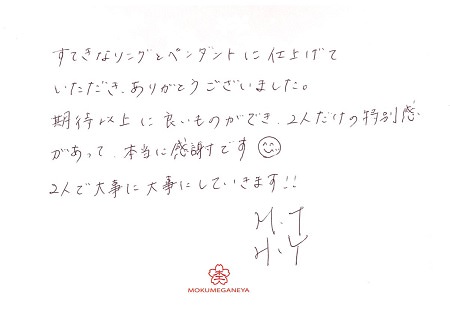 すてきなリングとペンダントに仕上げて
いただき、ありがとうございました。
期待以上に良いものができ、2人だけの特別感
があって、本当に感謝です
2人で大事に大事にしていきます!!
M.T
H.Y
MOKUMEGANEYA